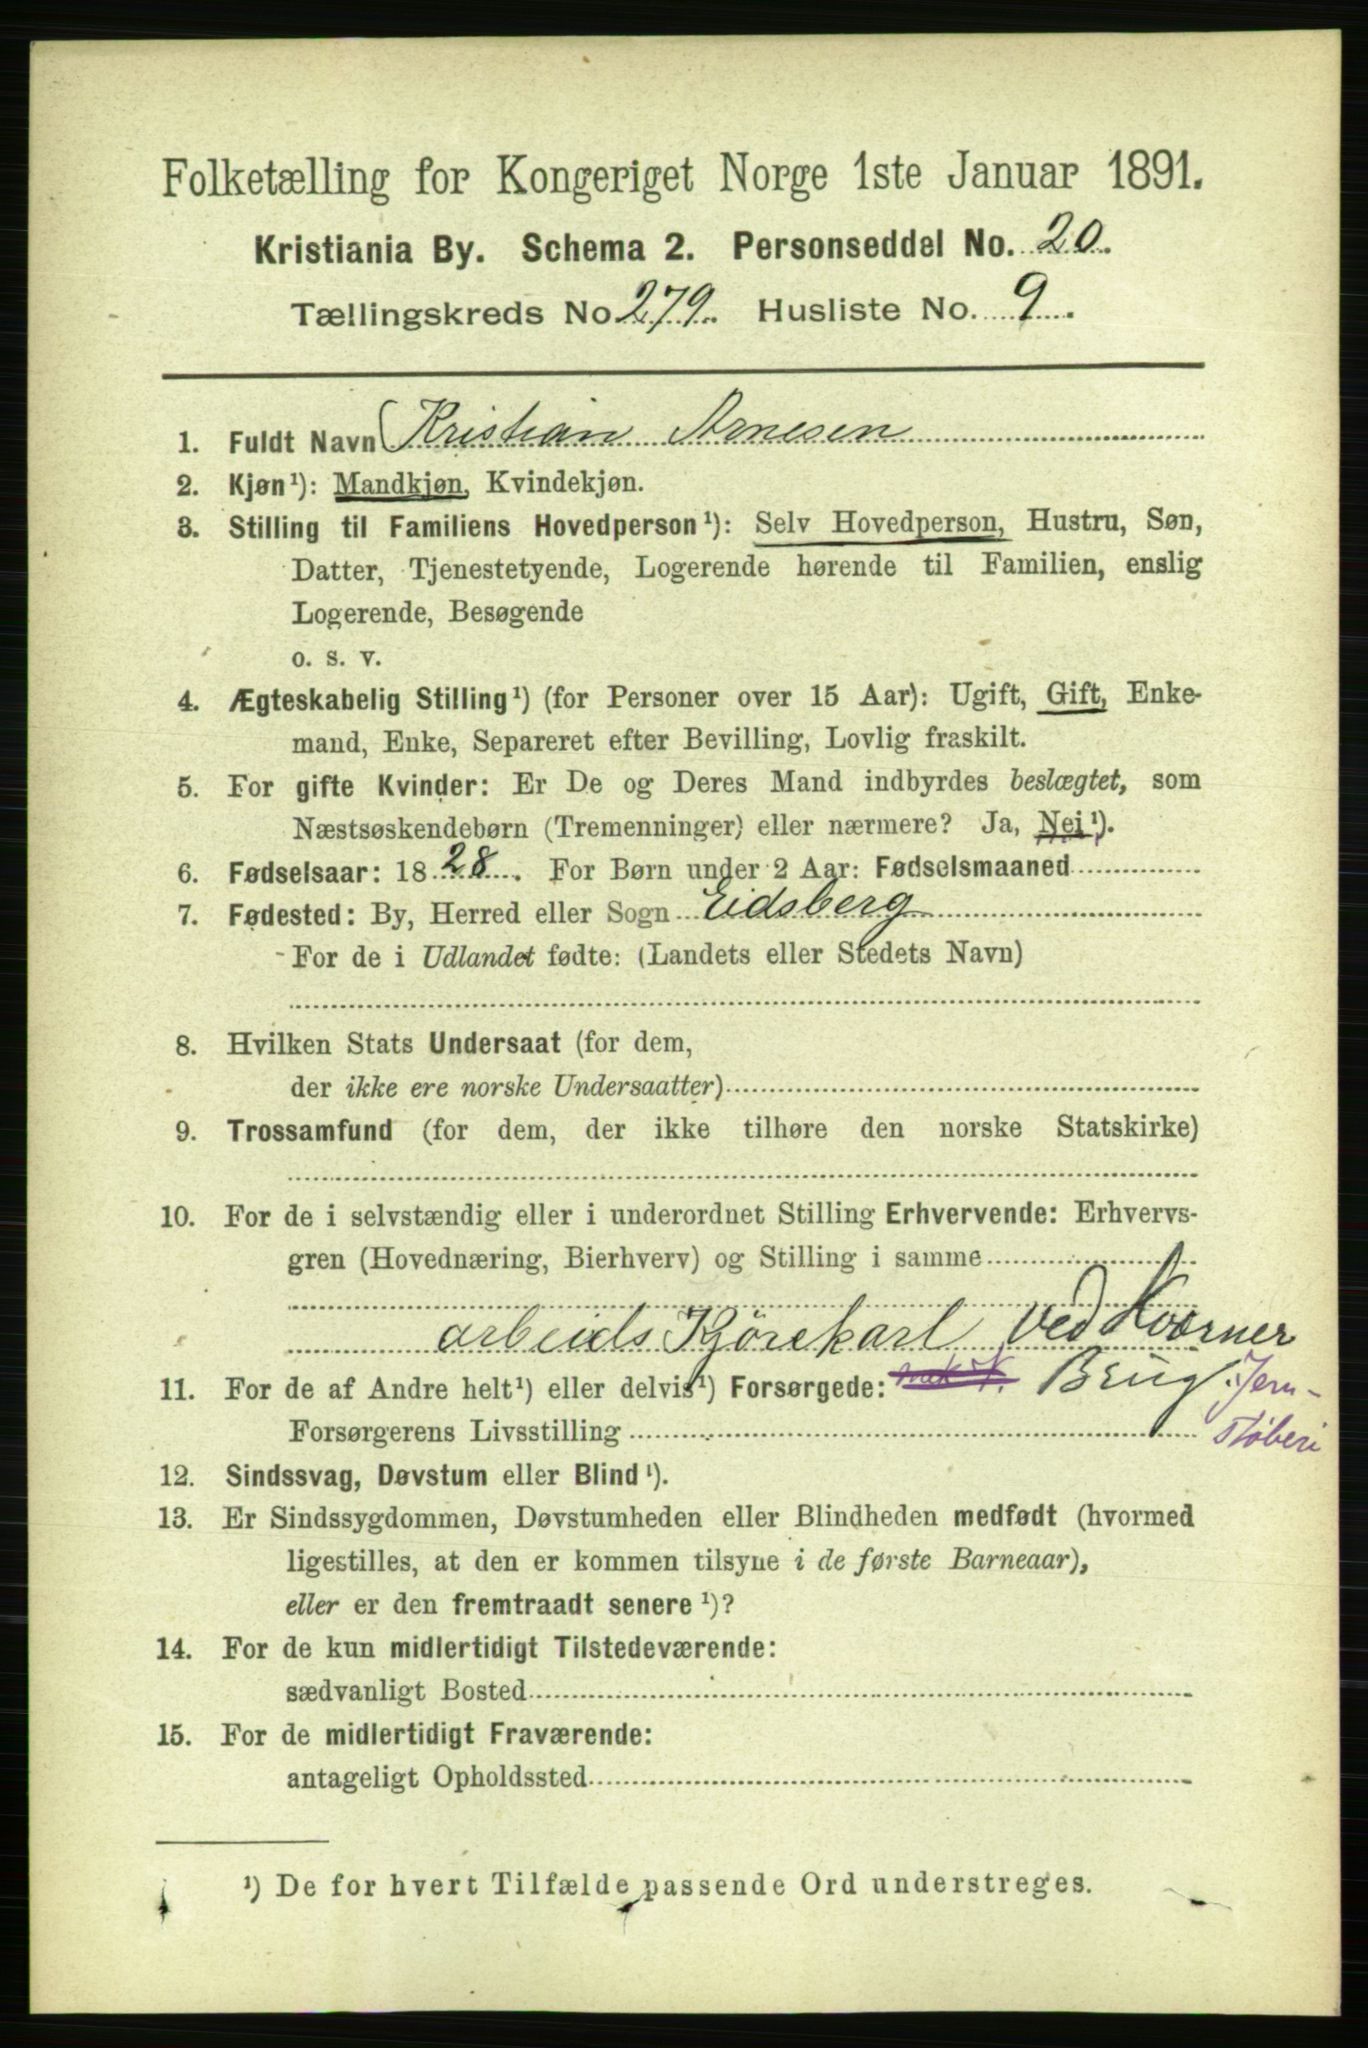 Folketælling for Kongeriget Norge 1ste Januar 1891.
Kristiania By. Schema 2. Personseddel No. 20.
Tællingskreds No. 279. Husliste No. 9.
1. Fuldt Navn Kristian Arnesen
2. Kjøn¹): Mandkjøn, Kvindekjøn.
3. Stilling til Familiens Hovedperson¹): Selv Hovedperson, Hustru, Søn,
Datter, Tjenestetyende, Logerende hørende til Familien, enslig
Logerende, Besøgende
o. s. v.
4. Ægteskabelig Stilling¹) (for Personer over 15 Aar): Ugift, Gift, Enke-
mand, Enke, Separeret efter Bevilling, Lovlig fraskilt.
5. For gifte Kvinder: Er De og Deres Mand indbyrdes beslægtet, som
Næstsøskendebørn (Tremenninger) eller nærmere? Ja, Nei¹).
6. Fødselsaar: 1828. For Børn under 2 Aar: Fødselsmaaned
7. Fødested: By, Herred eller Sogn Eidsberg
For de i Udlandet fødte: (Landets eller Stedets Navn)
8. Hvilken Stats Undersaat (for dem,
der ikke ere norske Undersaatter)
9. Trossamfund (for dem, der ikke tilhøre den norske Statskirke)
10. For de i selvstændig eller i underordnet Stilling Erhvervende: Erhvervs-
gren (Hovednæring, Bierhverv) og Stilling i samme
arbeids Kjørekarl ved Kværner
11. For de af Andre helt¹) eller delvis¹) Forsørgede: Brug. Jern-
Forsørgerens Livsstilling støberi
12. Sindssvag, Døvstum eller Blind¹).
13. Er Sindssygdommen, Døvstumheden eller Blindheden medfødt (hvormed
ligestilles, at den er kommen tilsyne i de første Barneaar),
eller er den fremtraadt senere¹)?
14. For de kun midlertidigt Tilstedeværende:
sædvanligt Bosted
15. For de midlertidigt Fraværende:
antageligt Opholdssted
¹) De for hvert Tilfælde passende Ord understreges.